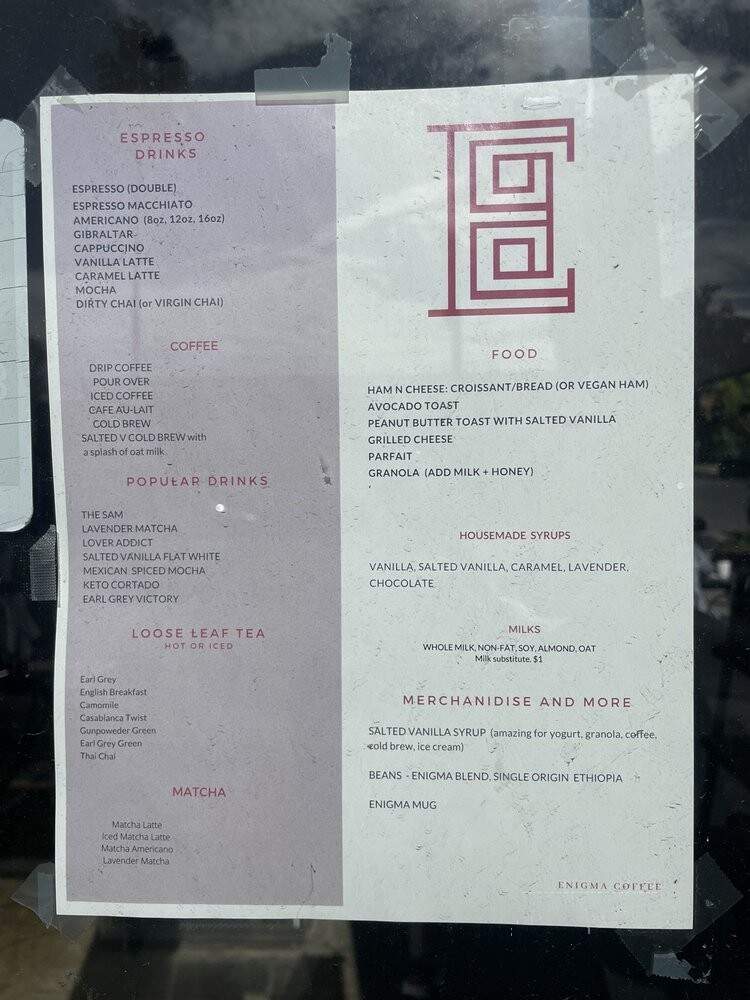 ESPRESSO
DRINKS
ESPRESSO (DOUBLE)
ESPRESSO MACCHIATO
AMERICANO (8oz, 12oz, 16oz)
GIBRALTAR
CAPPUCCINO
VANILLA LATTE
CARAMEL LATTE
MOCHA
DIRTY CHAI (or VIRGIN CHAI)
COFFEE
DRIP COFFEE
POUR OVER
ICED COFFEE
CAFE AU-LAIT
COLD BREW
SALTED V COLD BREW with
a splash of oat milk
POPULAR DRINKS
THE SAM
LAVENDER MATCHA
LOVER ADDICT
SALTED VANILLA FLAT WHITE
MEXICAN SPICED MOCHA
KETO CORTADO
EARL GREY VICTORY
LOOSE LEAF TEA
HOT OR ICED
Earl Grey
English Breakfast
Camomile
Casablanca Twist
Gunpoweder Green
Earl Grey Green
Thai Chai
MATCHA
Matcha Latte
Iced Matcha Latte
Matcha Americano
Lavender Matcha
FOOD
HAM N CHEESE: CROISSANT/BREAD (OR VEGAN HAM)
AVOCADO TOAST
PEANUT BUTTER TOAST WITH SALTED VANILLA
GRILLED CHEESE
PARFAIT
GRANOLA (ADD MILK + HONEY)
HOUSEMADE SYRUPS
VANILLA, SALTED VANILLA, CARAMEL, LAVENDER,
CHOCOLATE
MILKS
WHOLE MILK, NON-FAT, SOY, ALMOND, OAT
Milk substitute. $1
MERCHANIDISE AND MORE
SALTED VANILLA SYRUP (amazing for yogurt, granola, coffee,
cold brew, ice cream)
BEANS - ENIGMA BLEND, SINGLE ORIGIN ETHIOPIA
ENIGMA MUG
ENIGMA COFFEE